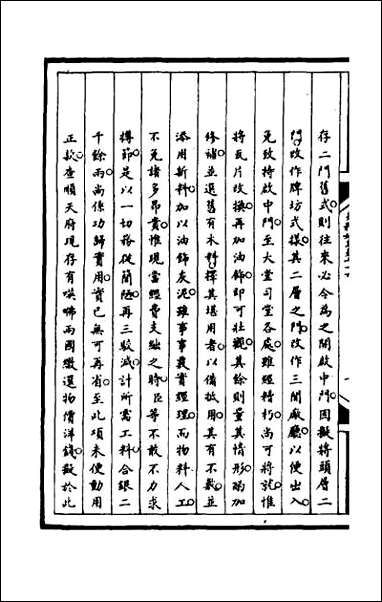 存二門舊式則往來必令為之開啟中門因擬將頭層二
門改作牌坊式樣其二層之門改作三間厰廳以便出入
免致持啟中門至大堂司堂各處雖經精朽尚可將就惟
將瓦片改換再加油飾即可壯觀其餘則量其情形酌加
修補並選舊有木料擇其堪用者以備抵用其有不敷並
添用新料加以油飾灰泥雖事事覈實經理而物料人工
不免諸多昂貴惟現當經費支絀之時臣等不敢不力求
撙節是以一切務從簡陋再三駮減計所需工料合銀二
千餘兩尚係功歸實用實已無可再省至此項未便動用
正款查順天府現存有𠸄咈兩國繳還物價洋錢擬於此